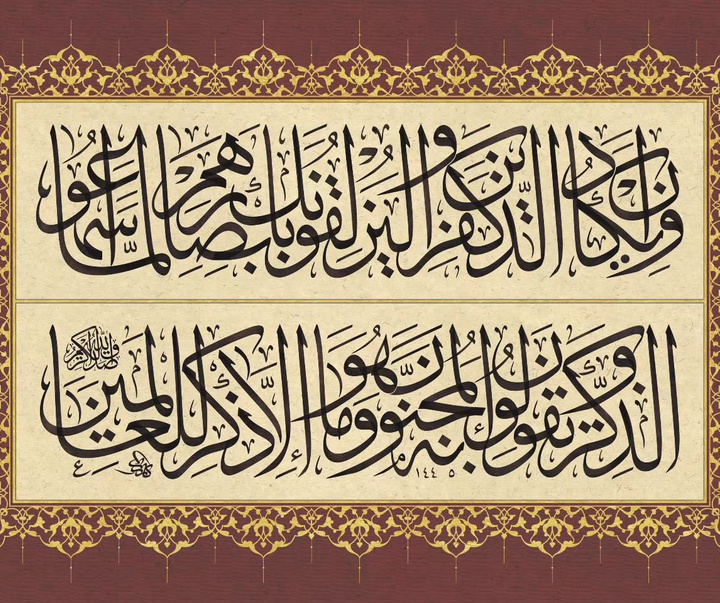 وإن يكاد الذين كفروا ليزلقونك بأبصارهم لما سمعوا
الذكر ويقولون إنه لمجنون وما هو إلا ذكر للعالمين
١٤٤٥